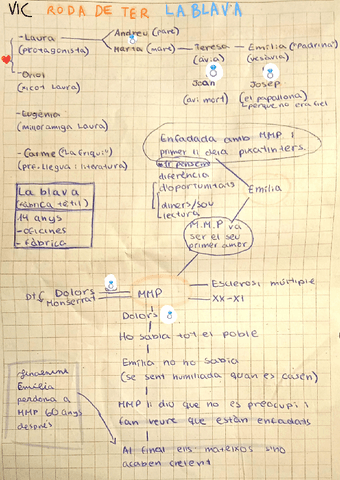 VIC RODA DE TER LA BLAVA
- Laura
(protagonista)
Andreu (pare)
Maria (mare)
Teresa
(àvia)
Emilia ("Padrina")
(vesàvia)
Joan
(avi mort)
Josep
(el papallona)
perquè no era fiel
- Oriol
(xicot Laura)
- Eugènia
(millor amiga Laura)
- Carme ("La friqui")
(pre. llegua i literatura)
La blava
(fàbrica tèxtil)
14 anys
- oficines
- fàbrica
Enfadada amb MMP i
primer li deia pixatinters.
diferència
d'oportunitats
diners/sou
lectura
Emilia
M.M.P va
ser el seu
primer amor
Dolors
Montserrat
MMP
Esclerosi múltiple
XX-XI
Dolors
Ho sabia tot el poble
Emilia no ho sabia
(se sent humiliada quan es casen)
MMP li diu que no es preocupi i
fan veure que estàn enfadats
Al final ells mateixos s'ho
acaben creient
finalment
Emilia
perdona a
MMP 60 anys
després